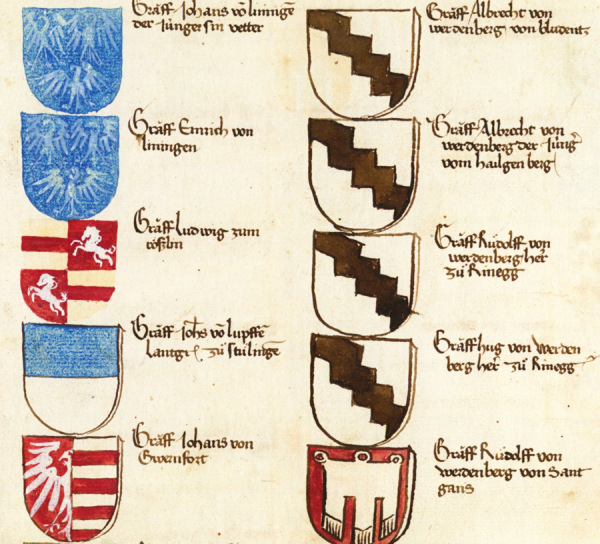 Gräff Johans võ lininge
der Junger sin vetter
Gräff Emrich von
liningen
Gräff ludwig zum
Gräff Johs võ lupffe
Lantgr zü stülinge
Gräff Johans von
Gräff Albrecht von
werdenberg von bludentz
Gräff Albrecht von
werdenberg der Jüng
vom hailgenberg
Gräff Rüdolff von
werdenberg her
zü Rinegg
Gräff hug von werden
berg her zü Rinegg
Gräff Rüdolff von
werdenberg von Sant
gans